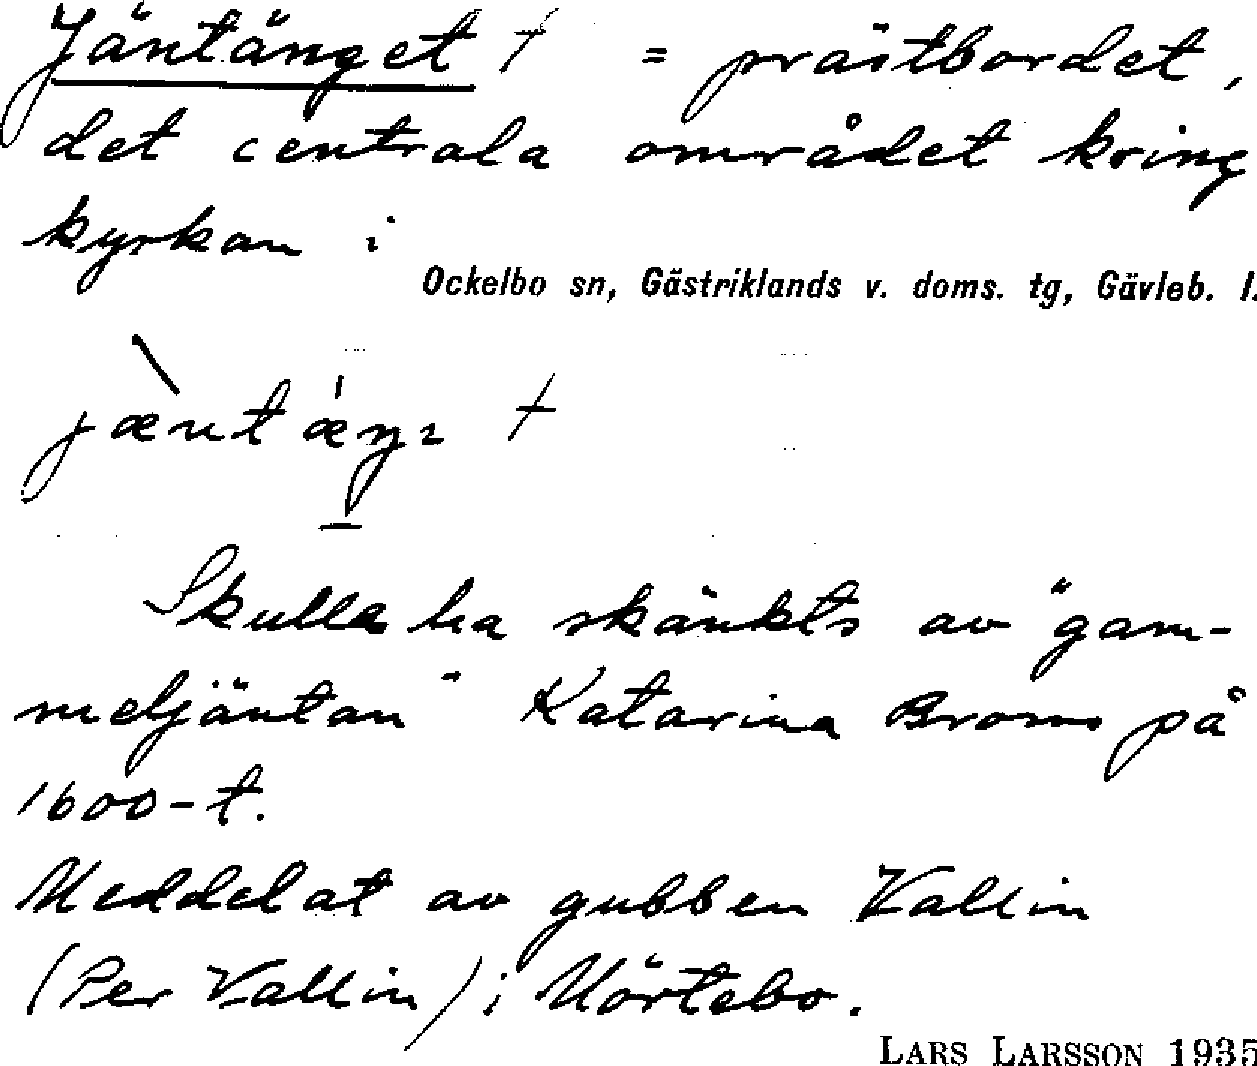 Jäntänget † = prästbordet,
det centrala området kring
kyrkan i
Ockelbo sn, Gästriklands v. doms. tg, Gävleb. l.
†
Skulla ha skänkts av "gam-
meljäntan" Katarina Broms på
1600-t.
Meddelat av gubben Vallin
(Per Vallin) i Mörtebo.
LARS LARSSON 1935